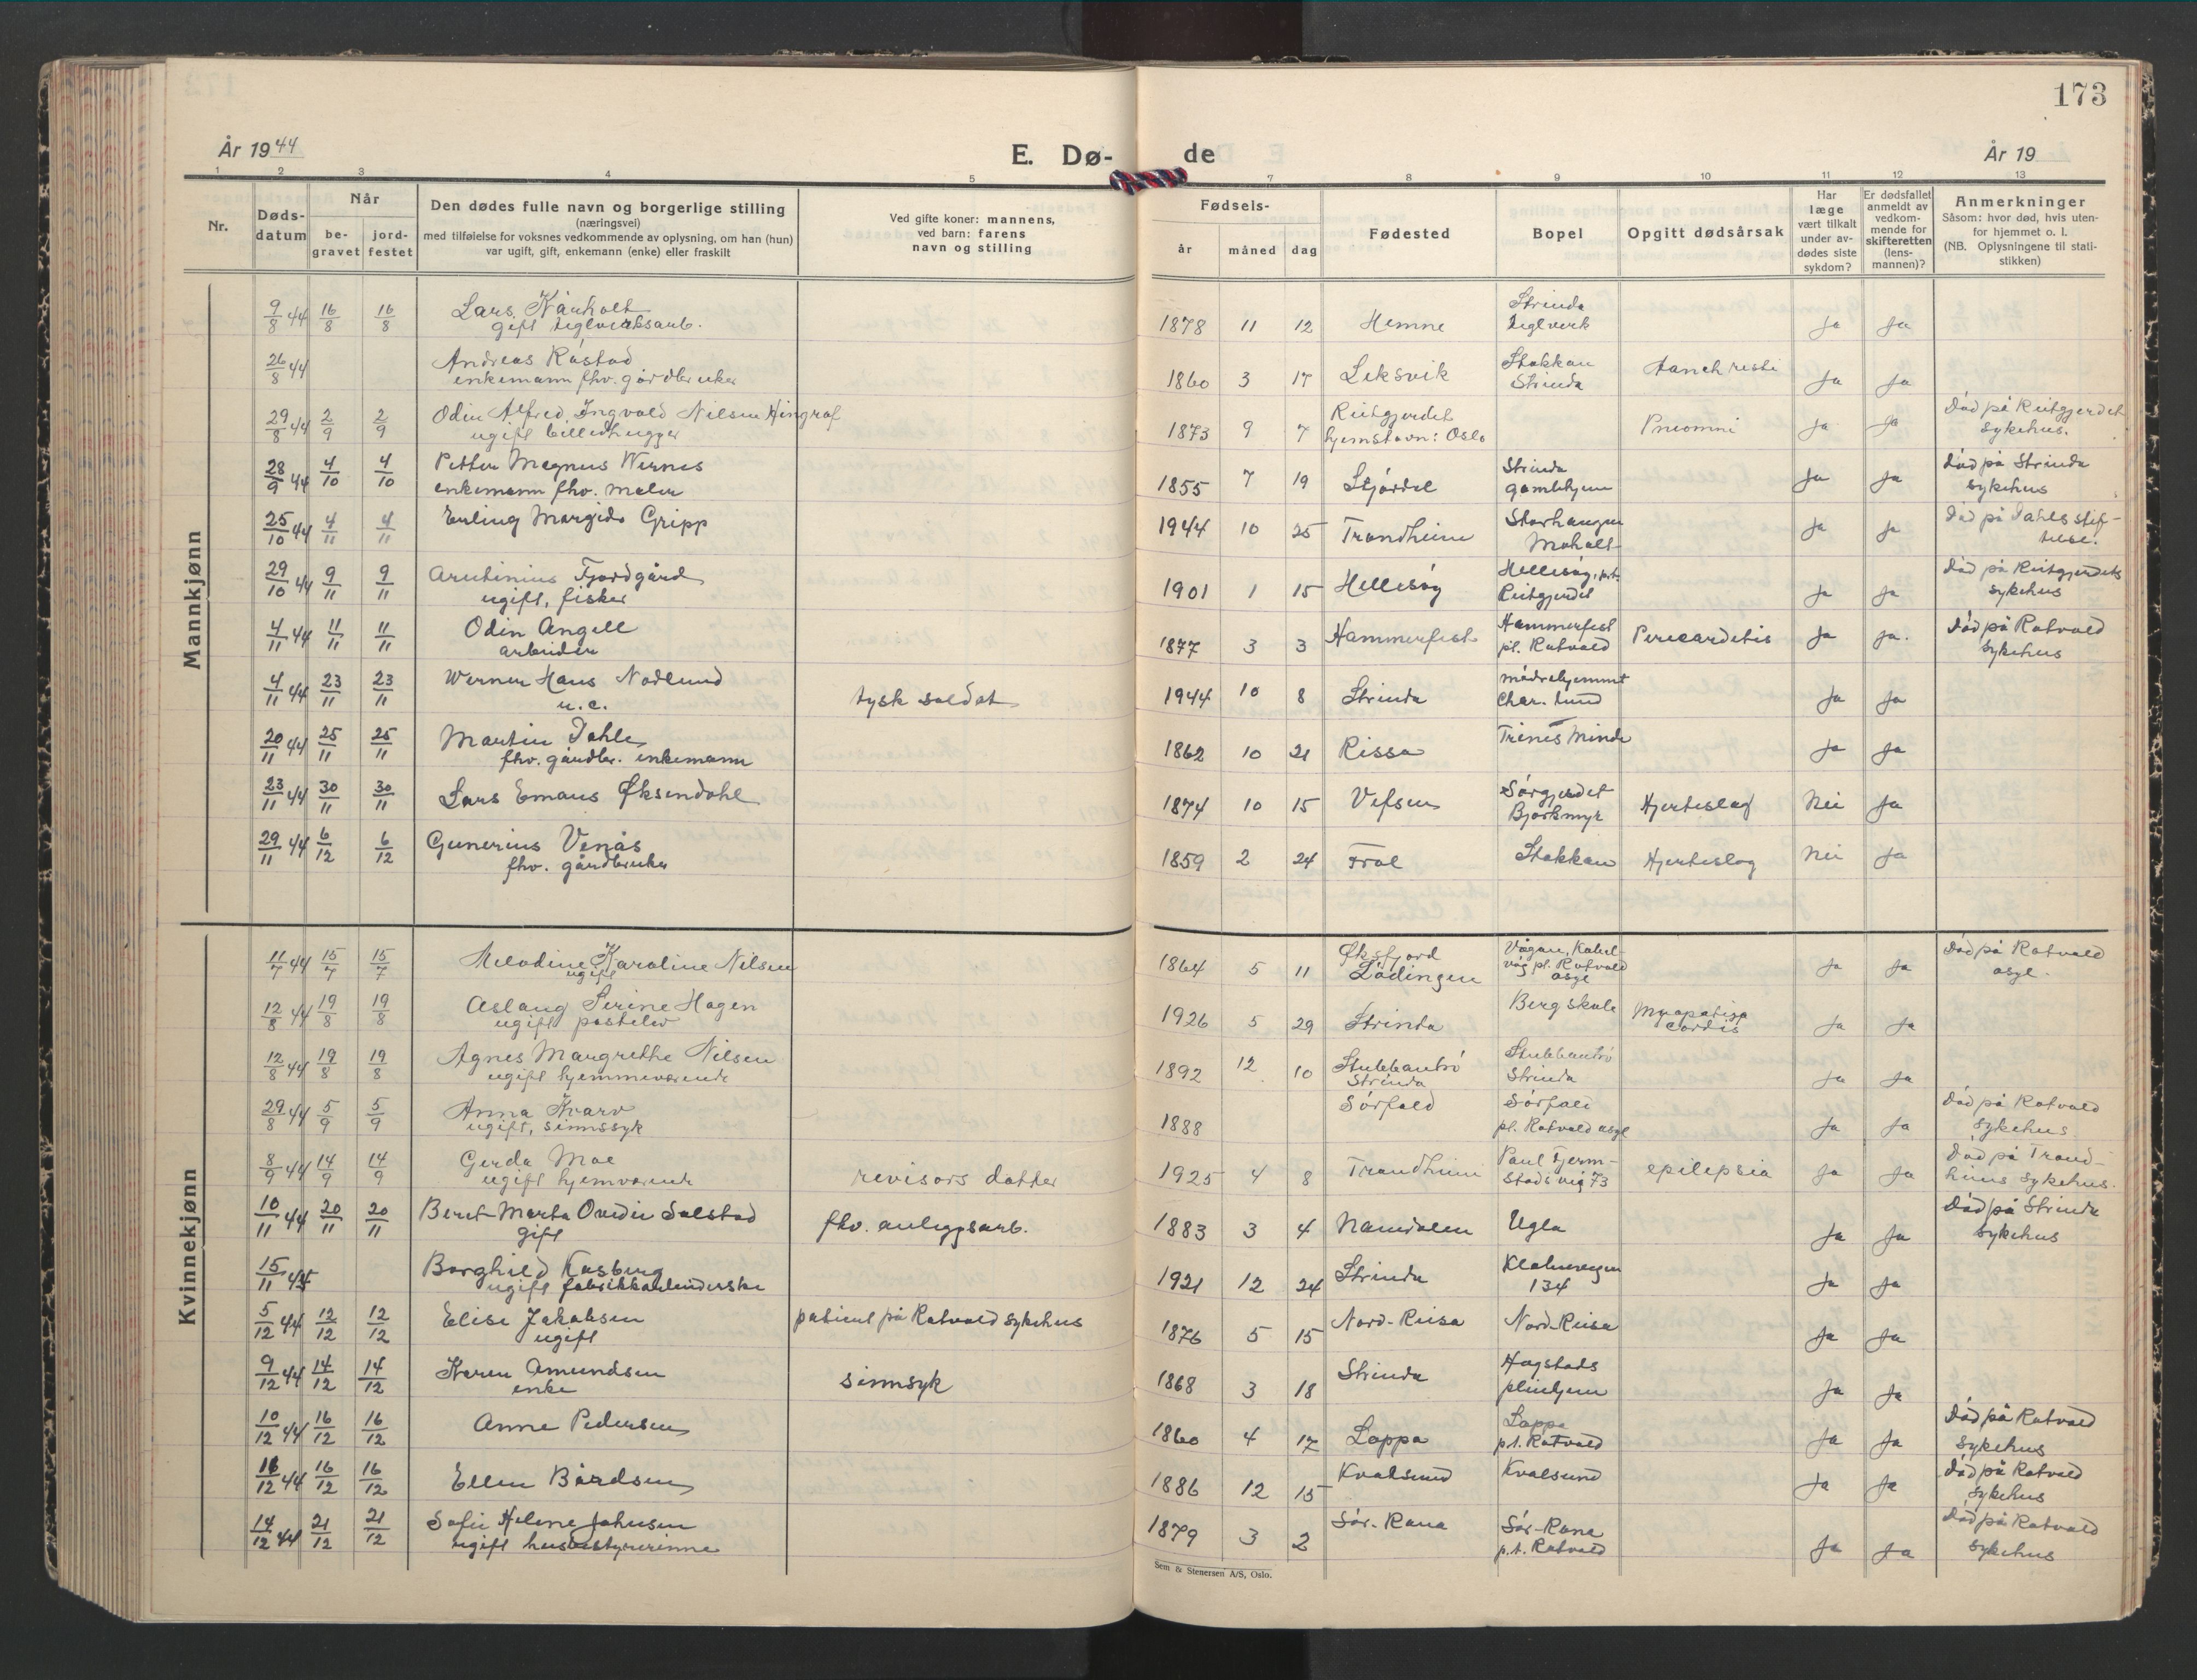 173
År 1944
E. Dø-
de
År 19
1 2 3 4 5 7 8 9 10 11 12 13
Nr.
Døds-
datum
Når
be-
gravet
jord-
festet
Den dødes fulle navn og borgerlige stilling
(næringsvei)
med tilføielse for voksnes vedkommende av oplysning, om han (hun)
var ugift, gift, enkemann (enke) eller fraskilt
Ved gifte koner: mannens,
ved barn: farens
navn og stilling
Fødsels-
år måned dag
Fødested
Bopel
Opgitt dødsårsak
Har
læge
vært tilkalt
under av-
dødes siste
sykdom?
Er dødsfallet
anmeldt av
vedkom-
mende for
skifteretten
(lens-
mannen)?
Anmerkninger
Såsom: hvor død, hvis uten-
for hjemmet o. l.
(NB. Oplysningene til stati-
stikken)
Mannkjønn
9/8 44 16/8 16/8 Lars Kårholt 1878 11 12 Hemne Strinda Ja Ja
gift teglverksarb. teglverk
26/8 44 Andreas Råstad 1860 3 17 Leksvik Stokkan Ja Ja
enkemann fhv. gårdbruker Strinda
29/8 44 2/9 2/9 Odin Alfred Ingvald Nilsen Hingraf 1873 9 7 Reitgjerdet Pneomni Ja Ja Död på Reitgjerdet
ugift billedhugger hjemstavn: Oslo sykehus.
28/9 44 4/10 4/10 Petter Magnus Wernes 1855 7 19 Stjördal Strinda Ja Ja Död på Strinda
enkemann fhv. maler gamlehjem sykehus
25/10 44 4/11 4/11 Erling Margido Gripp 1944 10 25 Trondheim Storhaugen Ja Ja Död på Dahls stif-
Moholt telse.
29/10 44 9/11 9/11 Arntinius Fjordgård 1901 1 15 Hellesöy Hellesöy, p.t. Ja Ja Död på Reitgjerdets
ugift, fisker Reitgjerdet sykehus
4/11 44 11/11 11/11 Odin Angell 1877 3 3 Hammerfest Hammerfest Pericardetis Ja Ja. Död på Rotvold
arbeider pl. Rotvold sykehus
4/11 44 23/11 23/11 Werner Hans Nodlund tysk soldat 1944 10 8 Strinda mödrehjemmet Ja Ja
u.e. Char. lund
20/11 44 25/11 25/11 Martin Dahle 1862 10 21 Rissa Trines Minde Ja Ja
fhv. gårdbr. enkemann
23/11 44 30/11 30/11 Lars Emaus Øksendahl 1874 10 15 Vefsen Sörgjerdet Hjerteslag Nei Ja
Bjørkmyr
29/11 44 6/12 6/12 Gunerius Venås 1859 2 24 Frol Stokkan Hjerteslag Nei Ja
fhv. gårdbruker
Kvinnekjønn
11/7 44 15/7 15/7 Melodine Karoline Nilsen 1864 5 11 Øksfjord Vågan, Kabel- Ja Ja Död på Rotvold
ugift Lödingen våg pl. Rotvold asyl.
asyl
12/8 44 19/8 19/8 Aslaug Serine Hagen 1926 5 29 Strinda Berg skole Myopatisja Ja Ja
ugift postelev Cordis
12/8 44 19/8 19/8 Agnes Margrethe Nilsen 1892 12 10 Stubbantrö Stubbantrö Ja Ja
ugift hjemmeværende Strinda Strinda
29/8 44 5/9 5/9 Anna Kvarv 1888 Sörfold Sörfold Ja Ja Död på Rotvold
ugift, sinnssyk pl. Rotvold asyl sykehus
8/9 44 14/9 14/9 Gerda Moe revisors datter 1925 4 8 Trondheim Paul Fjerm- epilepsia Ja Ja Död på Trond-
ugift hjemværende stads veg 73 heims sykehus.
10/11 44 20/11 20/11 Beret Marta Ovidie Solstad fhv. anleggsarb. 1883 3 4 Namdalen Ugla Ja Ja Död på Strinda
gift sykehus
15/11 45 Borghild Kasberg 1921 12 24 Strinda Ja Ja
ugift fabrikkarbeiderske 134
5/12 44 12/12 12/12 Elise Jakobsen patient på Rotvold sykehus 1876 5 15 Nord-Reisa Nord-Reisa Ja Ja
ugift
9/12 44 14/12 14/12 Karen Amundsen sinnsyk 1868 3 18 Strinda Hagstads Ja Ja
enke pleiehjem
10/12 44 16/12 16/12 Anne Pedersen 1860 4 17 Loppa Loppa Ja Ja Död på Rotvold
p.t. Rotvold sykehus
16/12 44 16/12 16/12 Ellen Bårdsen 1886 12 15 Kvalsund Kvalsund Ja Ja Död på Rotvold
sykehus
14/12 44 21/12 21/12 Sofie Helene Johnsen 1879 3 2 Sör-Rana Sör-Rana Ja Ja Död på Rotvold
ugift husbestyrerinne p.t. Rotvold sykehus
Sem & Stenersen A/S, Oslo.